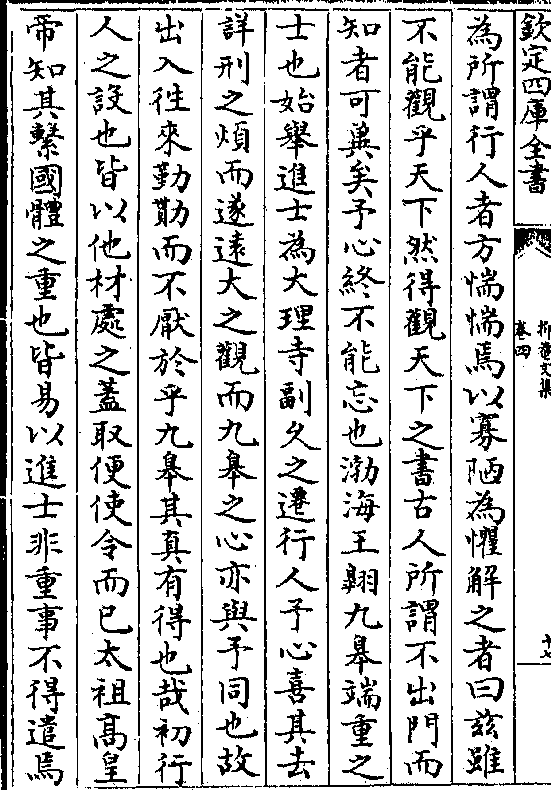 欽定四庫全書
抑菴文集
卷四
為所謂行人者方惴惴焉以寡陋為懼解之者曰茲雖
不能觀乎天下然得觀天下之書古人所謂不出門而
知者可冀矣予心終不能忘也渤海王翺九臯端重之
士也始舉進士為大理寺副久之遷行人予心喜其去
詳刑之煩而遂遠大之觀而九臯之心亦與予同也故
出入徃來勤勩而不厭於乎九臯其真有得也哉初行
人之設也皆以他材處之蓋取便使令而已太祖髙皇
帝知其繫國體之重也皆易以進士非重事不得遣焉